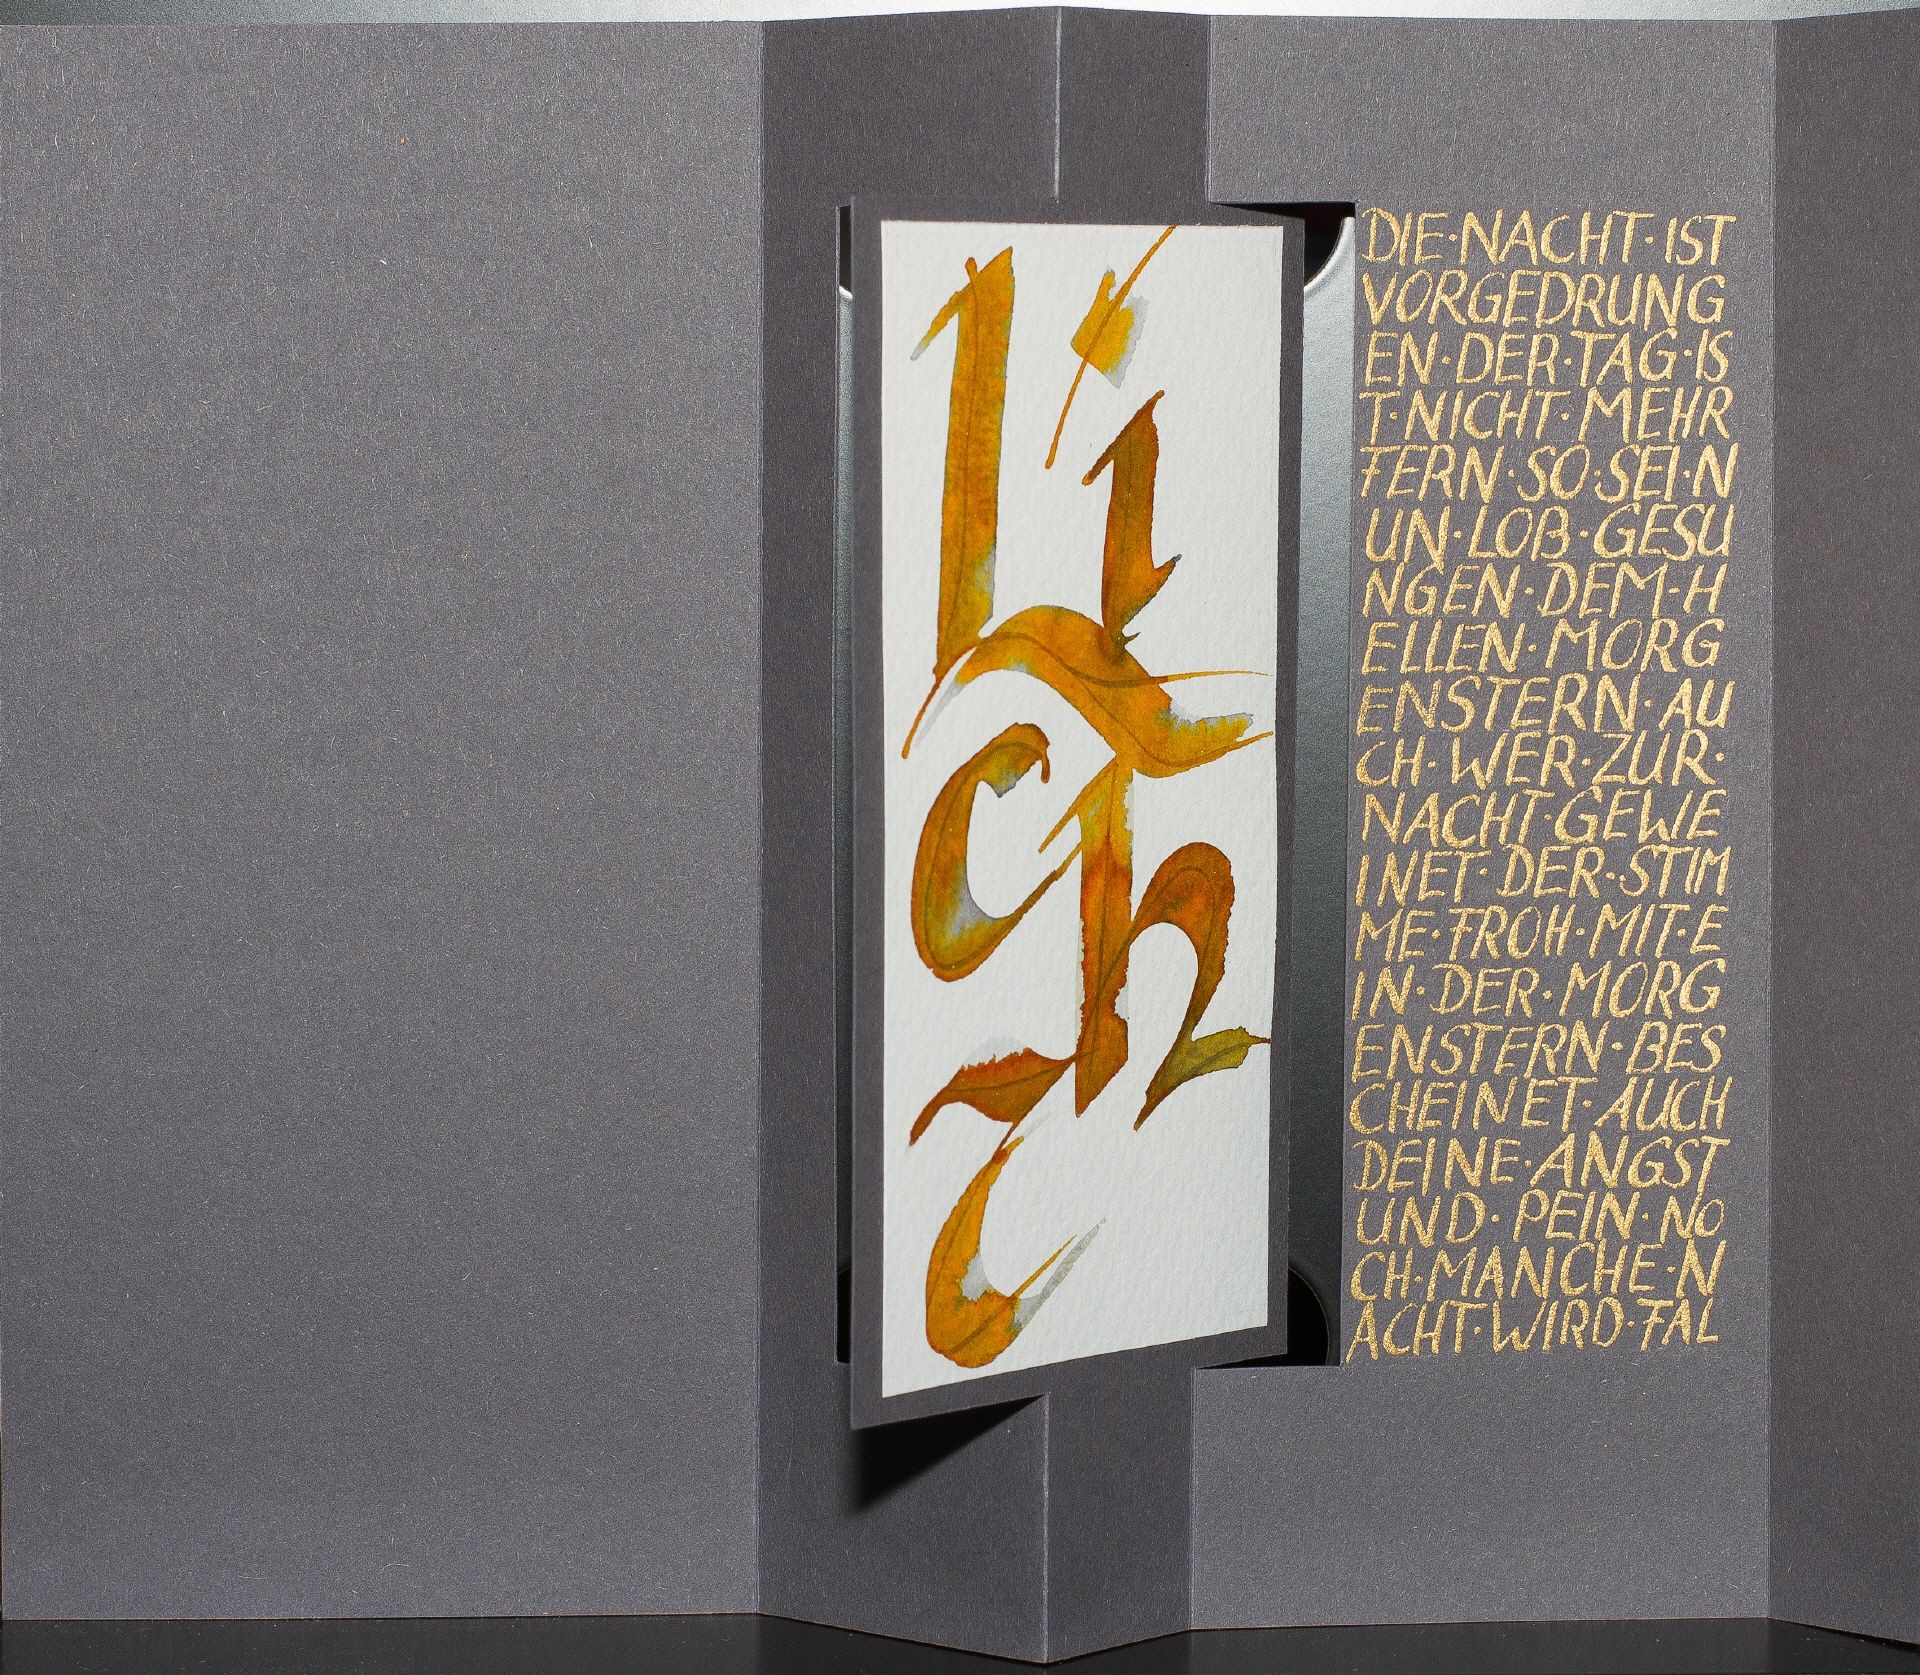 licht
DIE·NACHT·IST
VORGEDRUNG
EN·DER·TAG·IS
T·NICHT·MEHR
FERN·SO·SEI·N
UN·LOB·GESU
NGEN·DEM·H
ELLEN·MORG
ENSTERN·AU
CH·WER·ZUR·
NACHT·GEWE
INET·DER·STIM
ME·FROH·MIT·E
IN·DER·MORG
ENSTERN·BES
CHEINET·AUCH
DEINE·ANGST
UND·PEIN·NO
CH·MANCHE·N
ACHT·WIRD·FAL